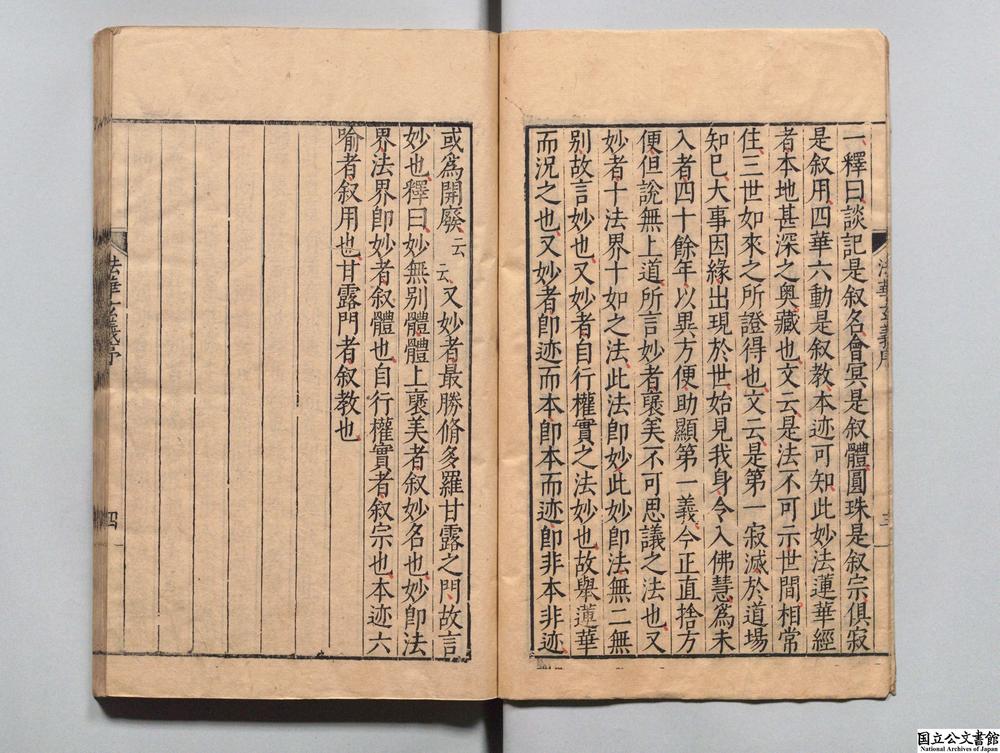 一釋曰談記是叙名會冥是叙體圓珠是叙宗俱寂
是叙用四華六動是叙教本迹可知此妙法蓮華經
者本地甚深之奥藏也文云是法不可示世間相常
住三世如來之所證得也文云是第一寂滅於道場
知已大事因緣出現於世始見我身令入佛慧爲未
入者四十餘年以異方便助顯第一義今正直捨方
便但說無上道所言妙者襃美不可思議之法也又
妙者十法界十如之法此法即妙此妙即法無二無
别故言妙也又妙者自行權實之法妙也故舉蓮華
而況之也又妙者即迹而本即本而迹即非本非迹
法華玄義序
三
或爲開廢云云又妙者最勝脩多羅甘露之門故言
妙也釋曰妙無别體體上襃美者叙妙名也妙即法
界法界即妙者叙體也自行權實者叙宗也本迹六
喻者叙用也甘露門者叙教也
法華玄義序
四
国立公文書館
National Archives of Japan